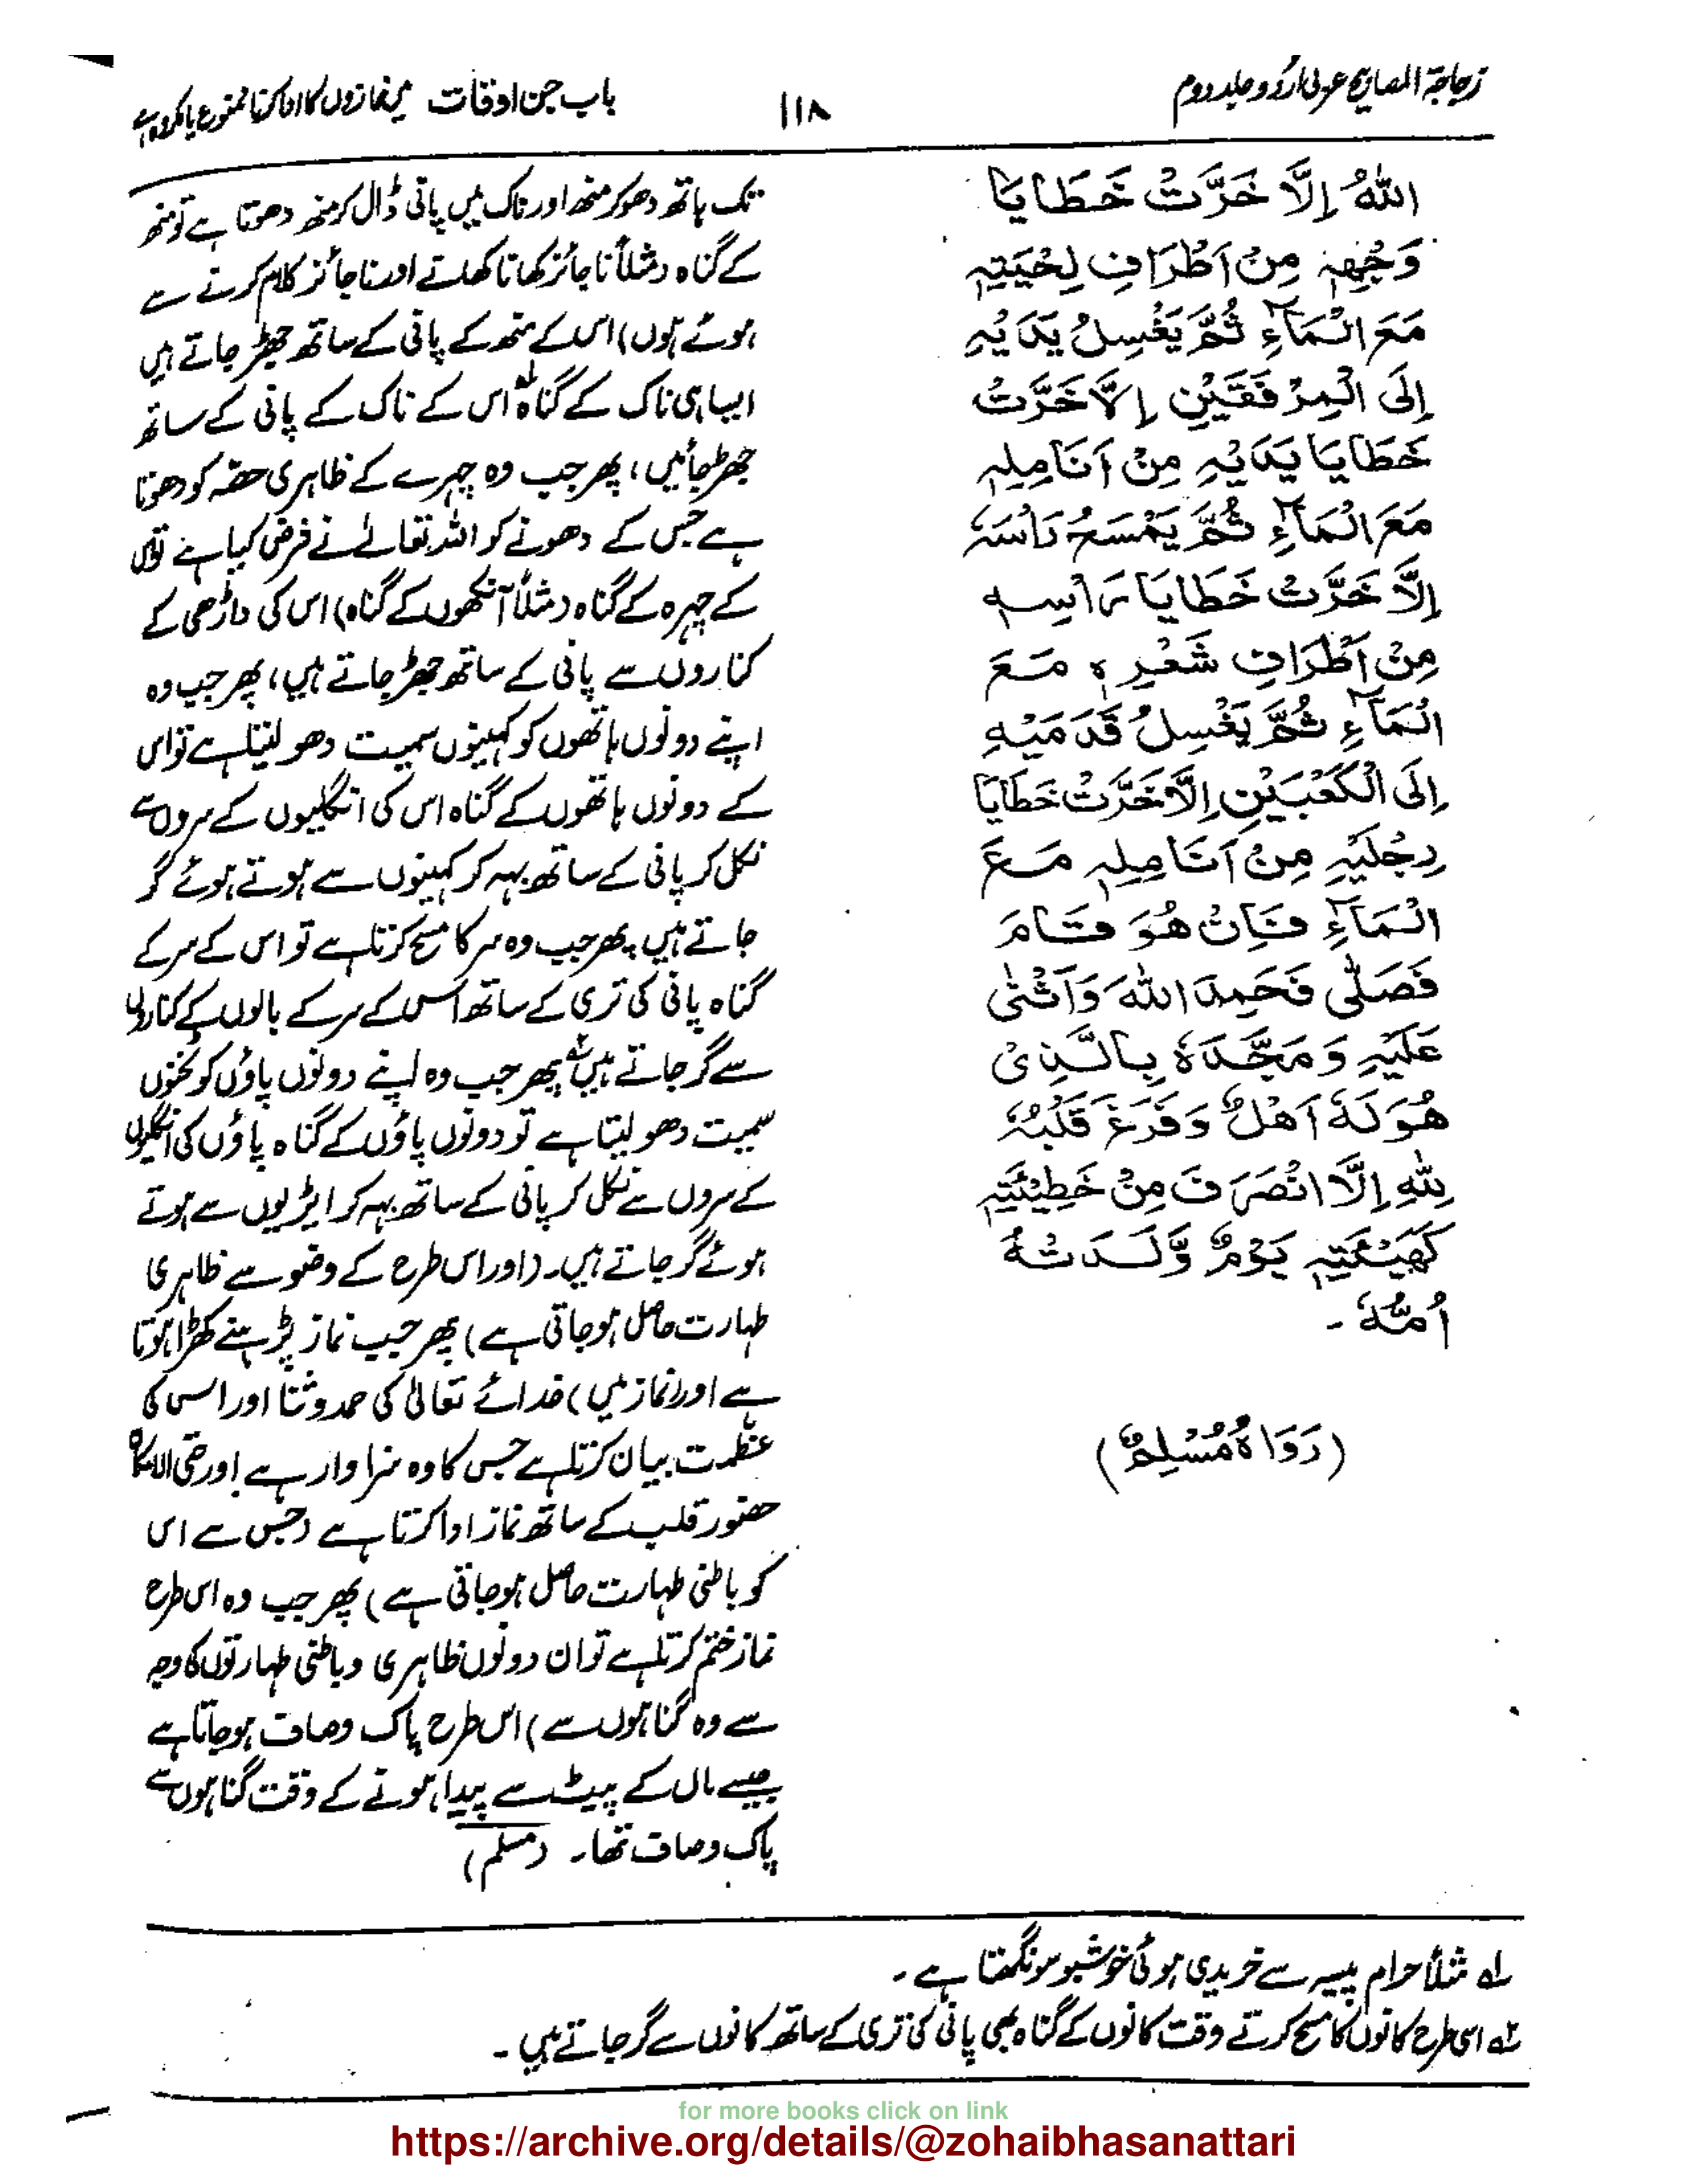 زجاجۃ المصابیح عربی اردو جلد دوم
۱۱۸
باب جن اوقات میں نمازوں کا ادا کرنا ممنوع یا مکروہ ہے
اللّٰهُ اِلَّا خَرَّتْ خَطَايَا
وَجْهِهٖ مِنْ اَطْرَافِ لِحْيَتِهٖ
مَعَ الْمَآءِ ثُمَّ يَغْسِلُ يَدَيْهِ
اِلَى الْمِرْفَقَيْنِ اِلَّا خَرَّتْ
خَطَايَا يَدَيْهِ مِنْ اَنَامِلِهٖ
مَعَ الْمَآءِ ثُمَّ يَمْسَحُ رَاْسَهٗ
اِلَّا خَرَّتْ خَطَايَا رَاْسِهٖ
مِنْ اَطْرَافِ شَعْرِهٖ مَعَ
الْمَآءِ ثُمَّ يَغْسِلُ قَدَمَيْهِ
اِلَى الْكَعْبَيْنِ اِلَّا خَرَّتْ خَطَايَا
رِجْلَيْهِ مِنْ اَنَامِلِهٖ مَعَ
الْمَآءِ فَاِنْ هُوَ قَامَ
فَصَلّٰى فَحَمِدَ اللّٰهَ وَاَثْنٰى
عَلَيْهِ وَمَجَّدَهٗ بِالَّذِىْ
هُوَ لَهٗ اَهْلٌ وَفَرَغَ قَلْبُهٗ
لِلّٰهِ اِلَّا انْصَرَفَ مِنْ خَطِيْئَتِهٖ
كَهَيْئَتِهٖ يَوْمٌ وَّلَدَتْهُ
اُمُّهٗ ۔
(رَوَاهُ مُسْلِمٌ)
تک ہاتھ دھو کر منھ اور ناک میں پانی ڈال کر منھ دھوتا ہے تو منھ
کے گناہ (مثلاً ناجائز کھانا کھانے اور ناجائز کلام کرنے سے
ہوئے ہوں) اس کے منھ کے پانی کے ساتھ جھڑ جاتے ہیں
ایسا ہی ناک کے گناہ ؎۱ اس کے ناک کے پانی کے ساتھ
جھڑ جائیں، پھر جب وہ چہرے کے ظاہری حصّہ کو دھوتا
ہے جس کے دھونے کو اللہ تعالےٰ نے فرض کیا ہے تو اس
کے چہرہ کے گناہ (مثلاً آنکھوں کے گناہ) اس کی داڑھی کے
کناروں سے پانی کے ساتھ جھڑ جاتے ہیں، پھر جب وہ
اپنے دونوں ہاتھوں کو کہنیوں سمیت دھو لیتا ہے تو اس
کے دونوں ہاتھوں کے گناہ اس کی انگلیوں کے سروں سے
نکل کر پانی کے ساتھ بہہ کر کہنیوں سے ہوتے ہوئے گر
جاتے ہیں، پھر جب وہ سر کا مسح کرتا ہے تو اس کے سر کے
گناہ پانی کی تری کے ساتھ اس کے سر کے بالوں کے کناروں
سے گر جاتے ہیں ؎۲ پھر جب وہ اپنے دونوں پاؤں کو ٹخنوں
سمیت دھو لیتا ہے تو دونوں پاؤں کے گناہ پاؤں کی انگلیوں
کے سروں سے نکل کر پانی کے ساتھ بہہ کر ایڑیوں سے ہوتے
ہوئے گر جاتے ہیں۔ (اور اس طرح کے وضو سے ظاہری
طہارت حاصل ہو جاتی ہے) پھر جب نماز پڑہنے کھڑا ہوتا
ہے اور (نماز میں) خدائے تعالیٰ کی حمد و ثنا اور اس کی
عظمت بیان کرتا ہے جس کا وہ سزاوار ہے اور حتی الامکان
حضور قلب کے ساتھ نماز ادا کرتا ہے (جس سے اس
کو باطنی طہارت حاصل ہو جاتی ہے) پھر جب وہ اس طرح
نماز ختم کرتا ہے تو ان دونوں ظاہری و باطنی طہارتوں کا وجہ
سے وہ گناہوں سے) اس طرح پاک و صاف ہو جاتا ہے
جیسے ماں کے پیٹ سے پیدا ہونے کے وقت گناہوں سے
پاک و صاف تھا۔ (مسلم)
؎۱ مثلاً حرام پیسے سے خریدی ہوئی خوشبو سونگھتا ہے۔
؎۲ اسی طرح کانوں کا مسح کرتے وقت کانوں کے گناہ بھی پانی کی تری کے ساتھ کانوں سے گر جاتے ہیں۔
for more books click on link
https://archive.org/details/@zohaibhasanattari